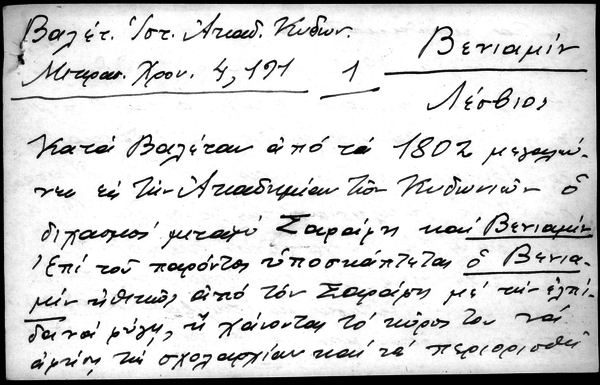 Βαλέτ. Ἱστ. Ἀκαδ. Κυδων.
Μικρασ. Χρον. 4, 191 1
Βενιαμίν
Λέσβιος
Κατὰ Βαλέταν ἀπό τὰ 1802 μεγαλώ-
νει εἰς τὴν Ἀκαδημίαν τῶν Κυδωνιῶν ὁ
διχασμός μεταξύ Σαράφη καὶ Βενιαμίν
Ἐπί τοῦ παρόντος ὑποσκάπτεται ὁ Βενια-
μίν ἠθικῶς ἀπό τὸν Σαράφη μέ τὴν ἐλπί-
δα νά φύγῃ, ἤ χάνοντας τό κῦρος του νά
ἀφήσῃ τὴ σχολαρχίαν καὶ νά περιορισθῇ